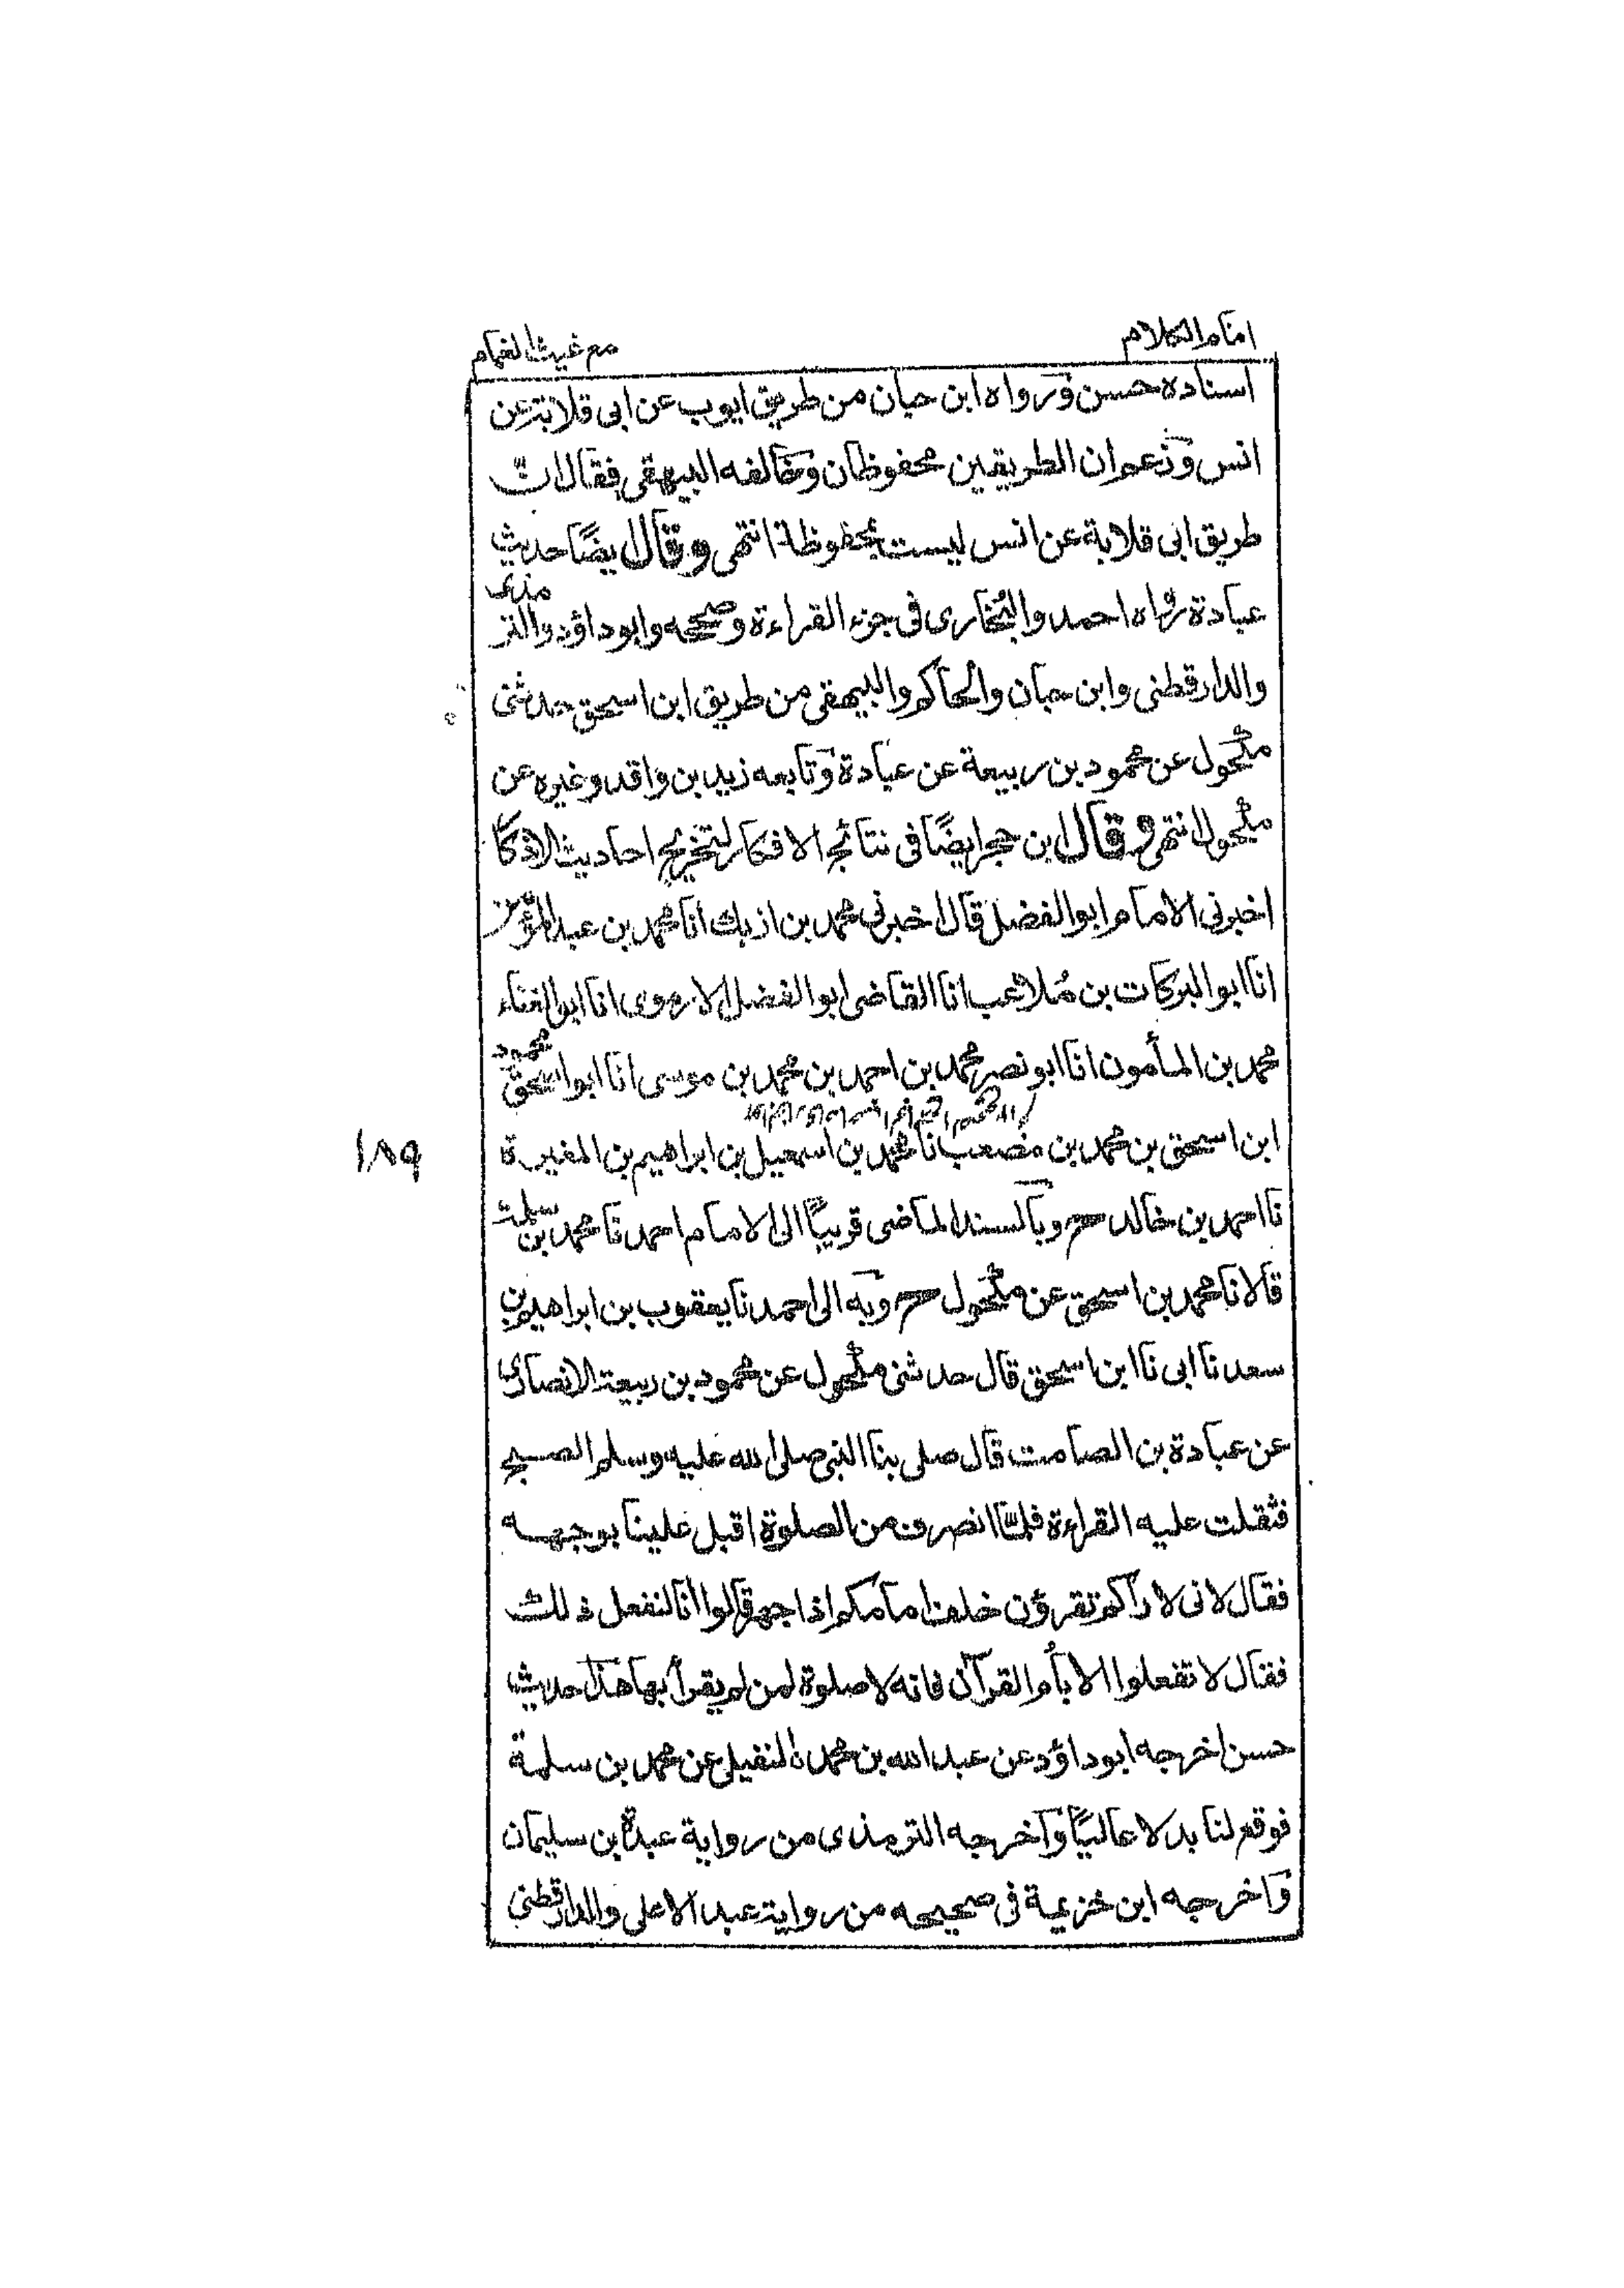 امام الكلام
مع غيث الغمام
اسناده حسن ورواه ابن حبان من طريق ايوب عن ابى قلابة عن
انس وزعم ان الطريقين محفوظان وخالفه البيهقى فقال ان
طريق ابى قلابة عن انس ليست بمحفوظة انتهى وقال ايضًا حديث
عبادة رواه احمد والبخارى فى جزء القراءة وصححه وابو داؤد والترمذى
والدارقطنى وابن حبان والحاكم والبيهقى من طريق ابن اسحق حدثنى
مكحول عن محمود بن ربيعة عن عبادة وتابعه زيد بن واقد وغيره عن
مكحول انتهى وقال ابن حجر ايضًا فى نتائج الافكار لتخريج احاديث الاذكار
اخبرنى الامام ابو الفضل قال اخبرنى محمد بن ازبك انا محمد بن عبد المؤمن
انا ابو البركات بن ملاعب انا القاضى ابو الفضل الارموى انا ابو الغناء
محمد بن المأمون انا ابو نصر محمد بن احمد بن محمد بن موسى انا ابو اسحق محمود
ابن اسحق بن محمد بن مصعب نا محمد بن اسمعيل بن ابراهيم بن المغيرة
١٨٩
نا احمد بن خالد ح وبالسند الماضى قريبًا الى الامام احمد نا محمد بن سلمة
قالا نا محمد بن اسحق عن مكحول ح وبه الى احمد نا يعقوب بن ابراهيم بن
سعد نا ابى نا ابن اسحق قال حدثنى مكحول عن محمود بن ربيعة الانصارى
عن عبادة بن الصامت قال صلى بنا النبى صلى الله عليه وسلم الصبح
فثقلت عليه القراءة فلمّا انصرف من الصلوة اقبل علينا بوجهه
فقال لانى لاراكم تقرؤن خلف امامكم اذا جهر قالوا انا لنفعل ذلك
فقال لا تفعلوا الا بأم القرآن فانه لا صلوة لمن لم يقرأ بها هذا حديث
حسن اخرجه ابو داؤد عن عبد الله بن محمد النفيلى عن محمد بن سلمة
فوقع لنا بدلا عاليًا وآخرجه الترمذى من رواية عبدة بن سليمان
واخرجه ابن خزيمة فى صحيحه من رواية عبد الاعلى والدارقطنى